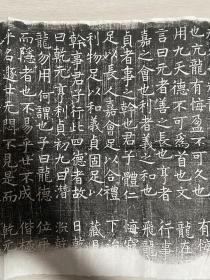 也亢龍有悔盈不可久也
用九天德不可為首也文
言曰元者善之長也亨者
嘉之會也利者義之和也
貞者事之幹也君子體仁
足以長人嘉會足以合禮
利物足以和義貞固足以
幹事君子行此四德者故
曰乾元亨利貞初九曰潛
龍勿用何謂也子曰龍德
而隱者也不易乎世不成
乎名遯世无悶不見是而
龍在
行事
悔窮
下治
藏見
日乾
淵乾
位乎
偕極
乾元